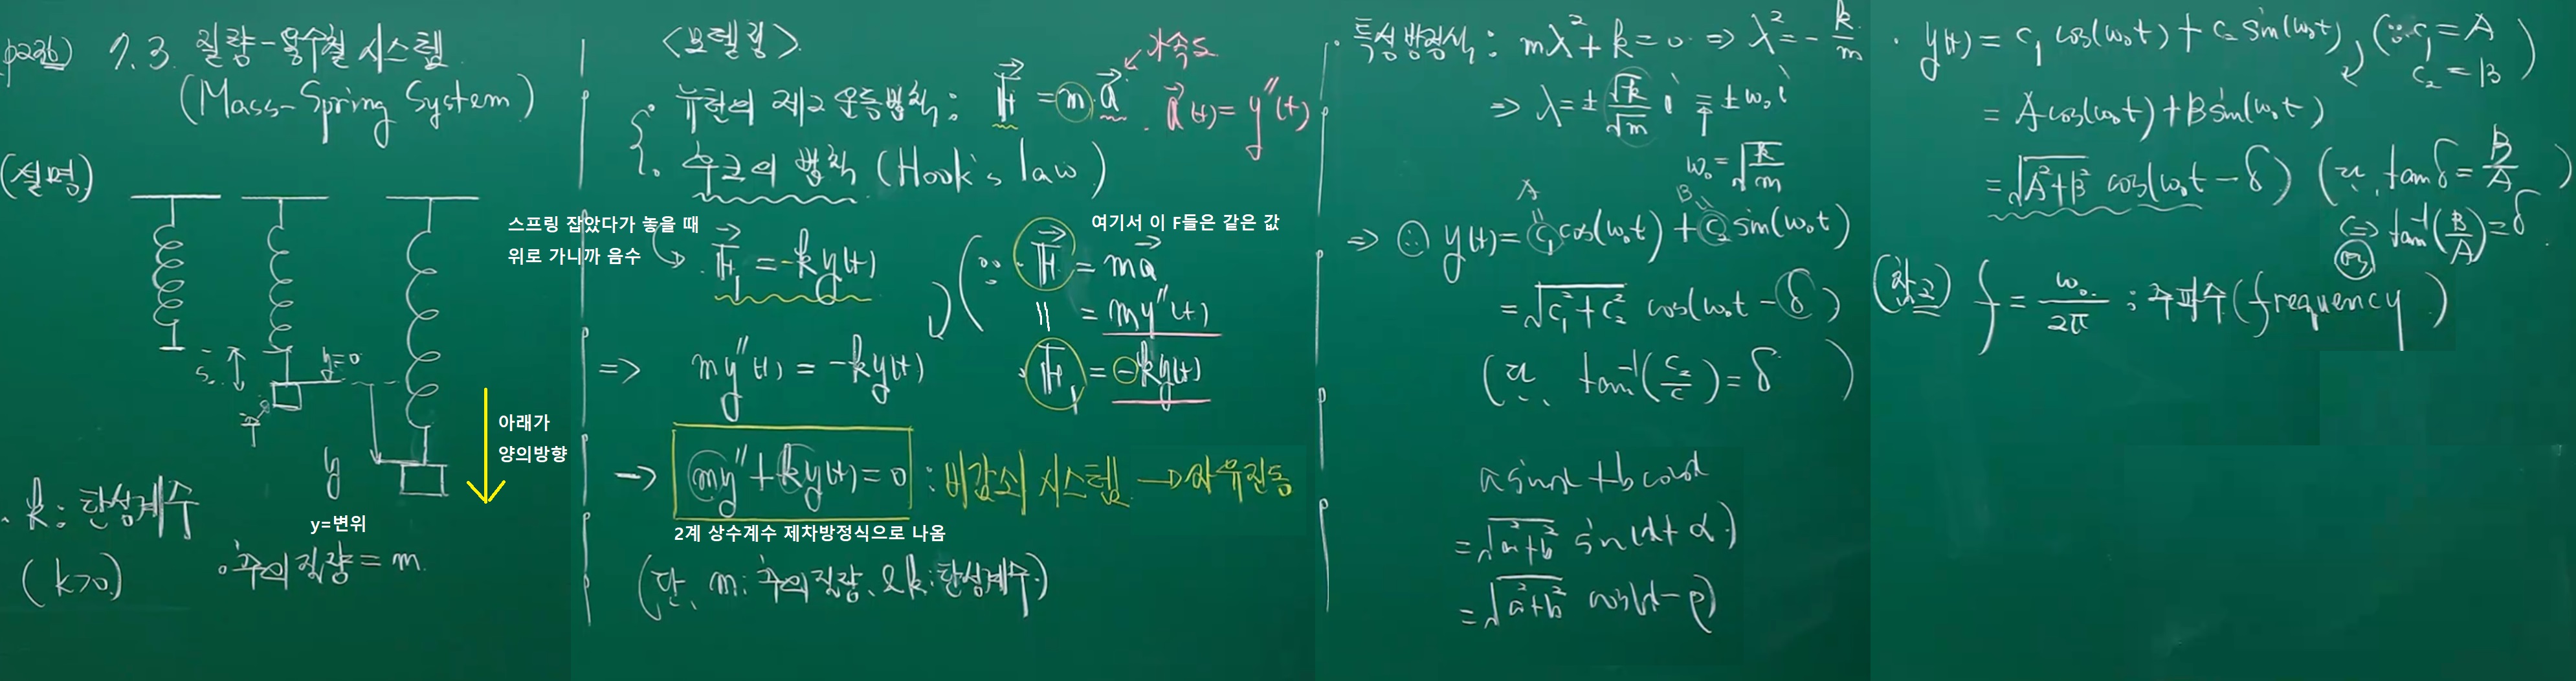 p236) 7.3. 질량-용수철 시스템
(Mass-Spring System)
(설명)
S₀
y=0
추
y
아래가
양의방향
y=변위
· k: 탄성계수
(k>0)
· 추의 질량 = m.
<모델링>
· 뉴턴의 제2 운동법칙: F = m·a
가속도
a(t) = y''(t)
· 후크의 법칙 (Hook's law)
스프링 잡았다가 놓을 때
위로 가니까 음수
F₁ = -ky(t)
여기서 이 F들은 같은 값
(∵ · F = ma
= my''(t)
· F₁ = -ky(t)
=> my''(t) = -ky(t)
→ my''+ky(t)=0 : 비감쇠 시스템 → 자유진동
2계 상수계수 제차방정식으로 나옴
(단, m: 추의 질량, & k: 탄성계수)
· 특성방정식: mλ²+k=0 => λ²=-k/m
=> λ=±√k/√m i = ±ω₀i
ω₀=√(k/m)
A B
=> ∴ y(t)= c₁cos(ω₀t)+c₂sin(ω₀t)
=√(c₁²+c₂²) cos(ω₀t-δ)
(단, tan⁻¹(c₂/c)=δ )
a sinα+b cosα
=√(a²+b²) sin(α+α)
=√(a²+b²) cos(α-β)
· y(t) = c₁ cos(ω₀t)+c₂ sin(ω₀t) (∵ c₁=A
c₂=B )
= A cos(ω₀t)+B sin(ω₀t)
=√(A²+B²) cos(ω₀t-δ) (단, tanδ=B/A )
<=> tan⁻¹(B/A)=δ
(참2) f = ω₀/2π : 주파수 (frequency)